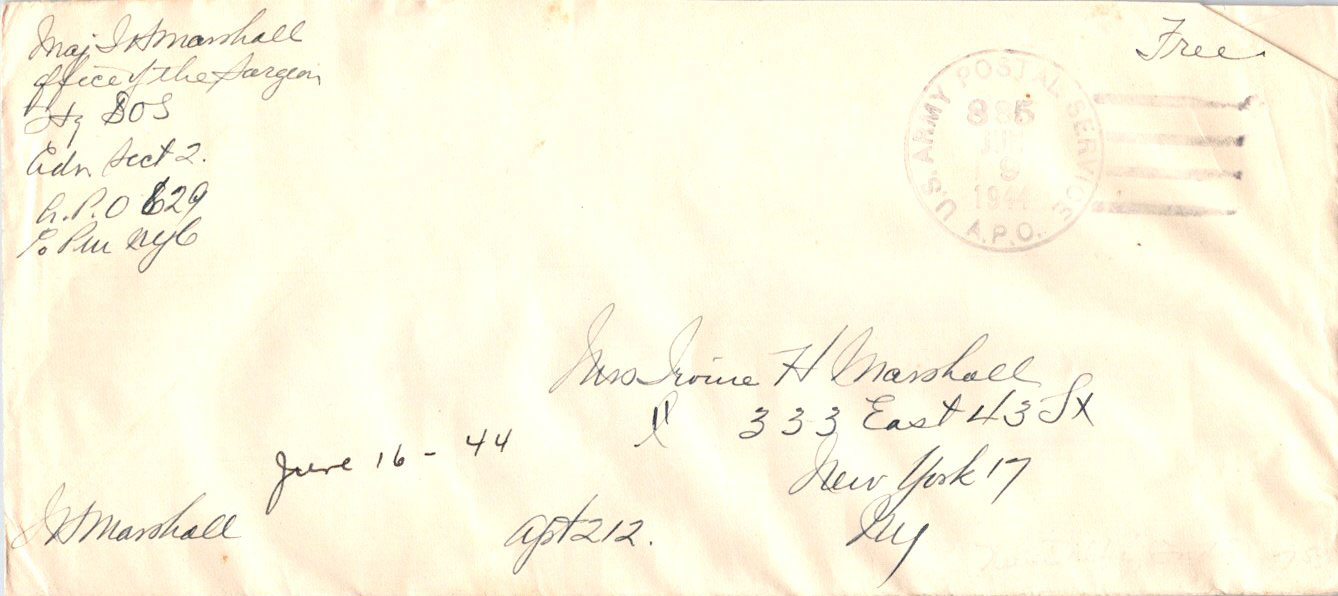 Maj I H Marshall
office of the Surgeon
Hq SOS
Adv. Sect 2.
A.P.O 629
℅ PM NYC
Free
U.S. ARMY POSTAL SERVICE
A.P.O.
1944
Mrs Irvine H Marshall
333 East 43 St
June 16 - 44
New York 17
I H Marshall
Apt 212.
NY